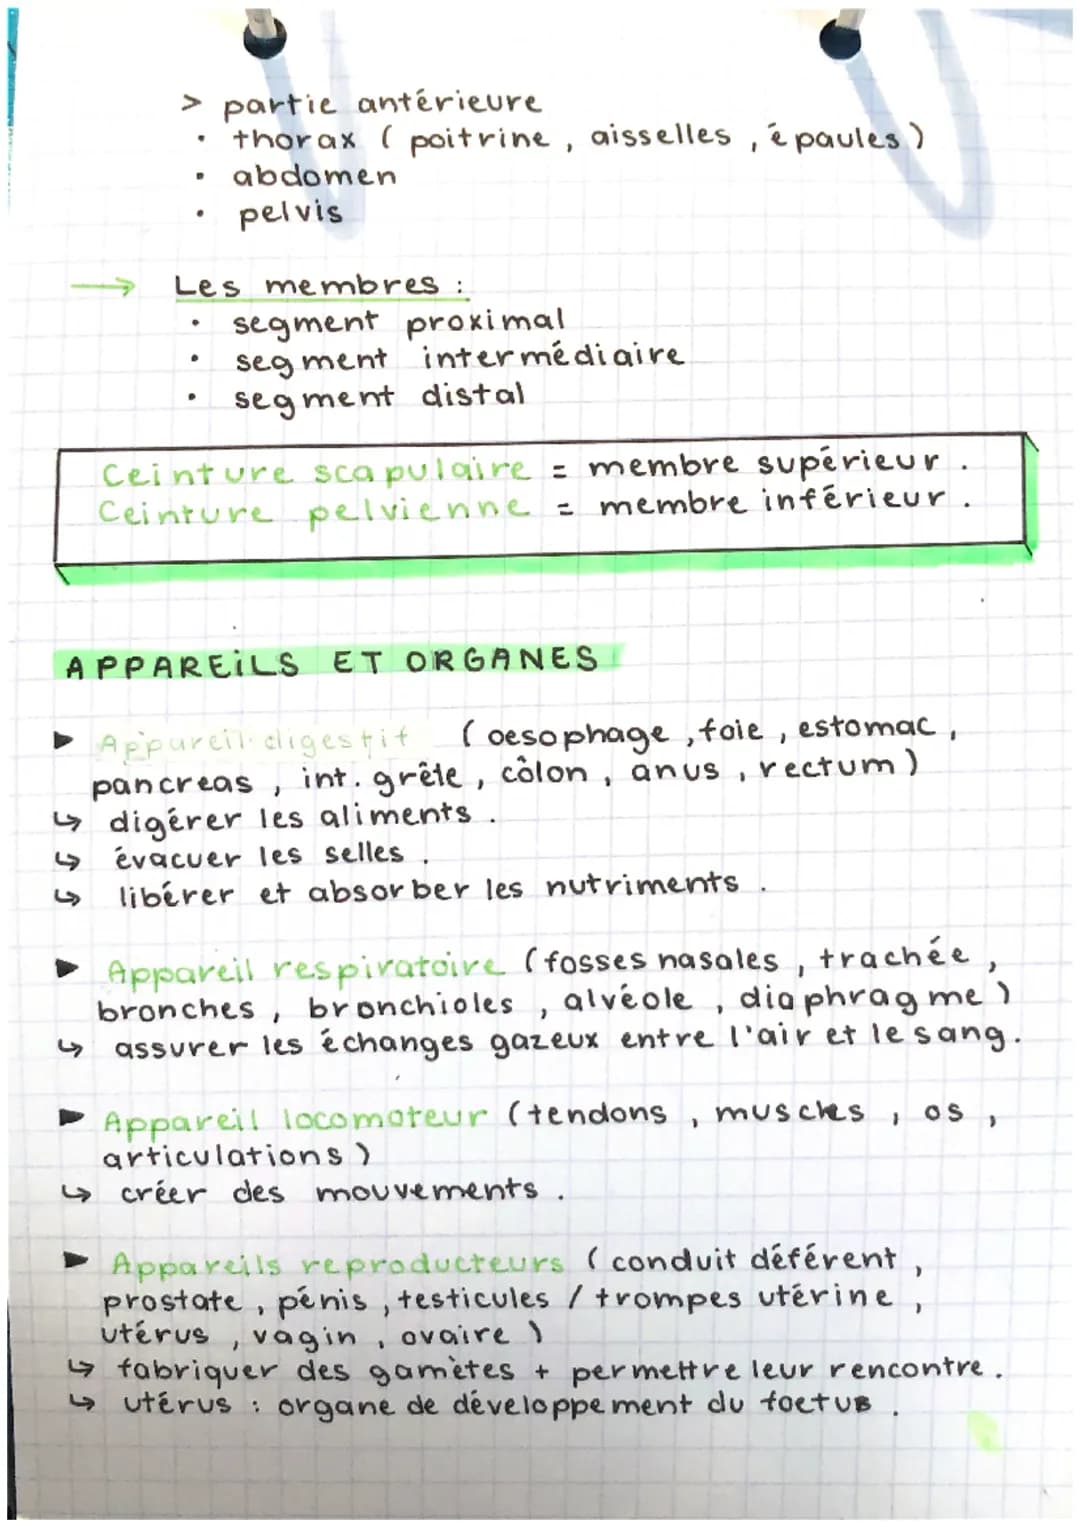 > partie antérieure
• thorax ( poitrine , aisselles , épaules )
• abdomen
• pelvis
→ Les membres :
• segment proximal
• segment intermédiaire
• segment distal
Ceinture scapulaire = membre supérieur .
Ceinture pelvienne = membre inférieur .
APPAREiLS ET ORGANES
► Appareil digestif ( oesophage , foie , estomac ,
pancreas , int. grêle , côlon , anus , rectum )
↳ digérer les aliments .
↳ évacuer les selles .
↳ libérer et absorber les nutriments .
► Appareil respiratoire ( fosses nasales , trachée ,
bronches , bronchioles , alvéole , diaphragme )
↳ assurer les échanges gazeux entre l'air et le sang .
► Appareil locomoteur ( tendons , muscles , os ,
articulations )
↳ créer des mouvements .
► Appareils reproducteurs ( conduit déférent ,
prostate , pénis , testicules / trompes utérine ,
utérus , vagin , ovaire )
↳ fabriquer des gamètes + permettre leur rencontre .
↳ utérus : organe de développement du foetus .